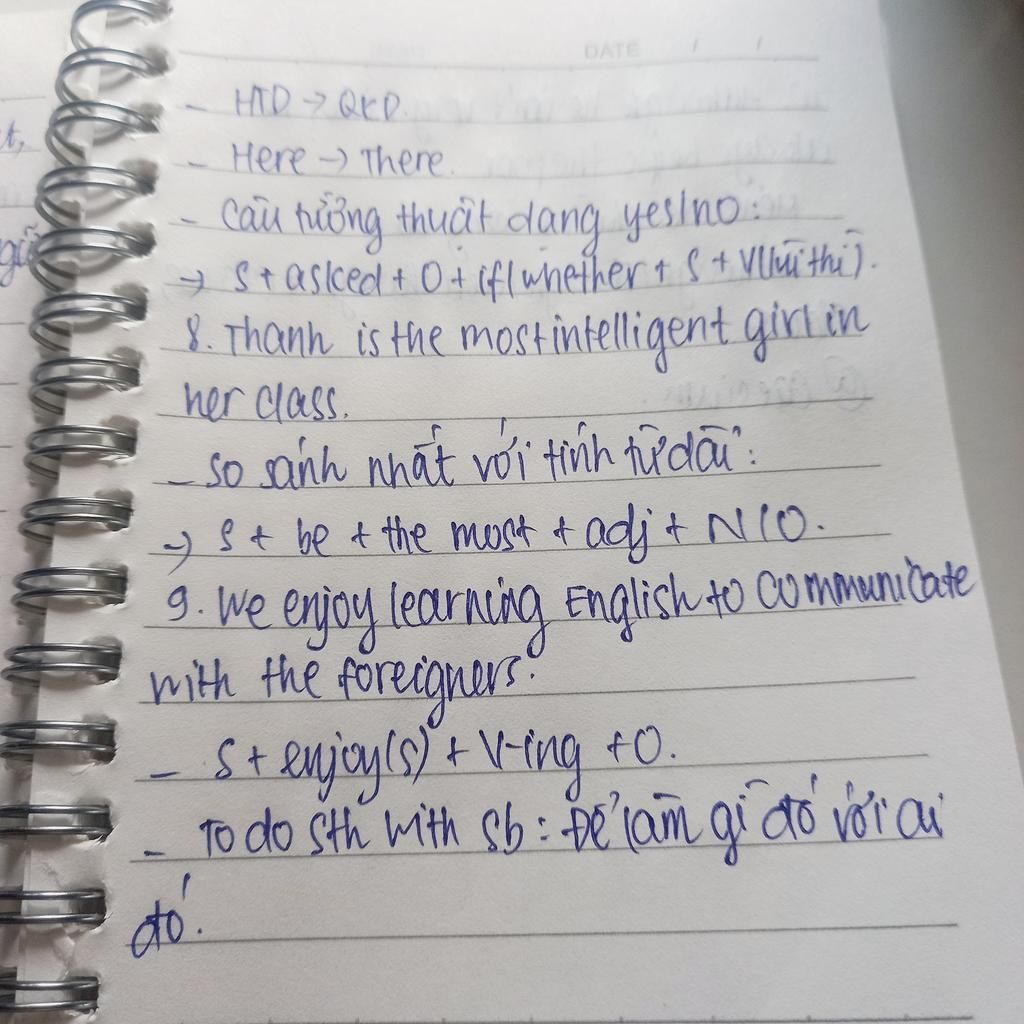 DATE / /
- HTD → QKD.
- Here → There.
- Câu tường thuật dạng yes/no:
→ S + asked + O + if/whether + S + V(lùi thì).
8. Thanh is the most intelligent girl in
her class.
- So sánh nhất với tính từ dài:
→ S + be + the most + adj + N/O.
9. We enjoy learning English to communicate
with the foreigners.
- S + enjoy(s) + V-ing + O.
- To do sth with sb: Để làm gì đó với ai
đó.